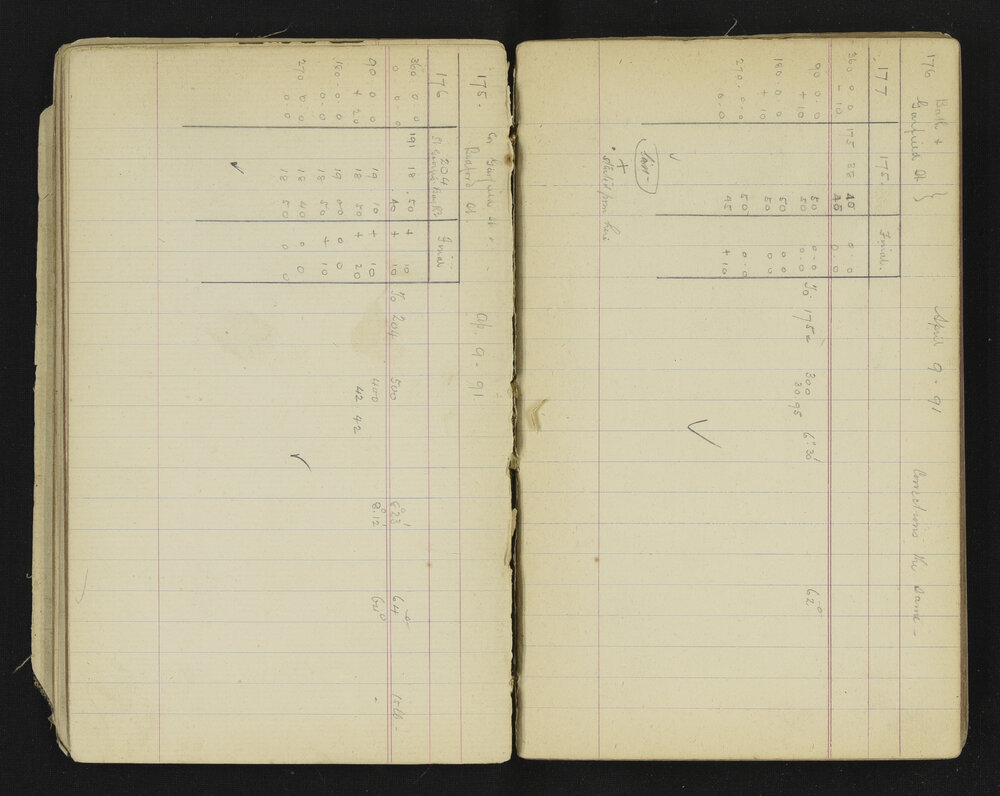 176 Bath + Garfield St } April 9 - 91 Corrections the same -
177 175. Final.
360 0 0 175 38 45 0 . 0
- 10 45 0 . 0
90 0 . 0 50 0 . 0 To 175 = 300 6° 30' 62°
+ 10 50 0 . 0 30 95
180 . 0 0 50 0 0
+ 10 50 0 0
270 . 0 . 0 50 0 . 0
0 . 0 45 + 10
+ started from here
175. Cr Garfield St Ap. 9 - 91
176 204 Final
360 0 0 191 18 . 50 + 10
0 0 . 0 . 40 + 10 To 204 500 8° 23' 64
90 . 0 . 0 19 10 + 10 400 8° 12 60°
+ 20 18 50 + 20 42 42
180 . 0 . 0 19 00 0 0
0 . 0 18 50 + 10
270 0 . 0 18 40 0 0
0 . 0 18 50 0 0